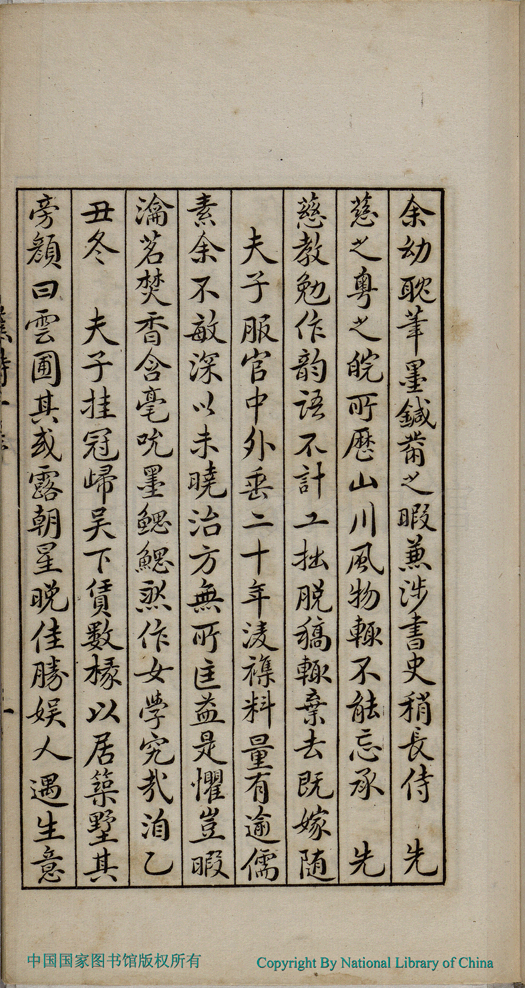 余幼耽筆墨鍼黹之暇兼涉書史稍長侍　先
慈之粵之皖所歷山川風物輒不能忘承　先
慈教勉作韵語不計工拙脫稿輒棄去既嫁随
夫子服官中外垂二十年凌襍料量有逾儒
素余不敏深以未曉治方無所匡益是懼豈暇
瀹茗焚香含毫吮墨鰓鰓然作女學究哉洎乙
丑冬　夫子挂冠歸吴下賃數椽以居築墅其
旁顏曰雲圃其或露朝星晚佳勝娱人遇生意
中国国家图书馆版权所有
Copyright By National Library of China